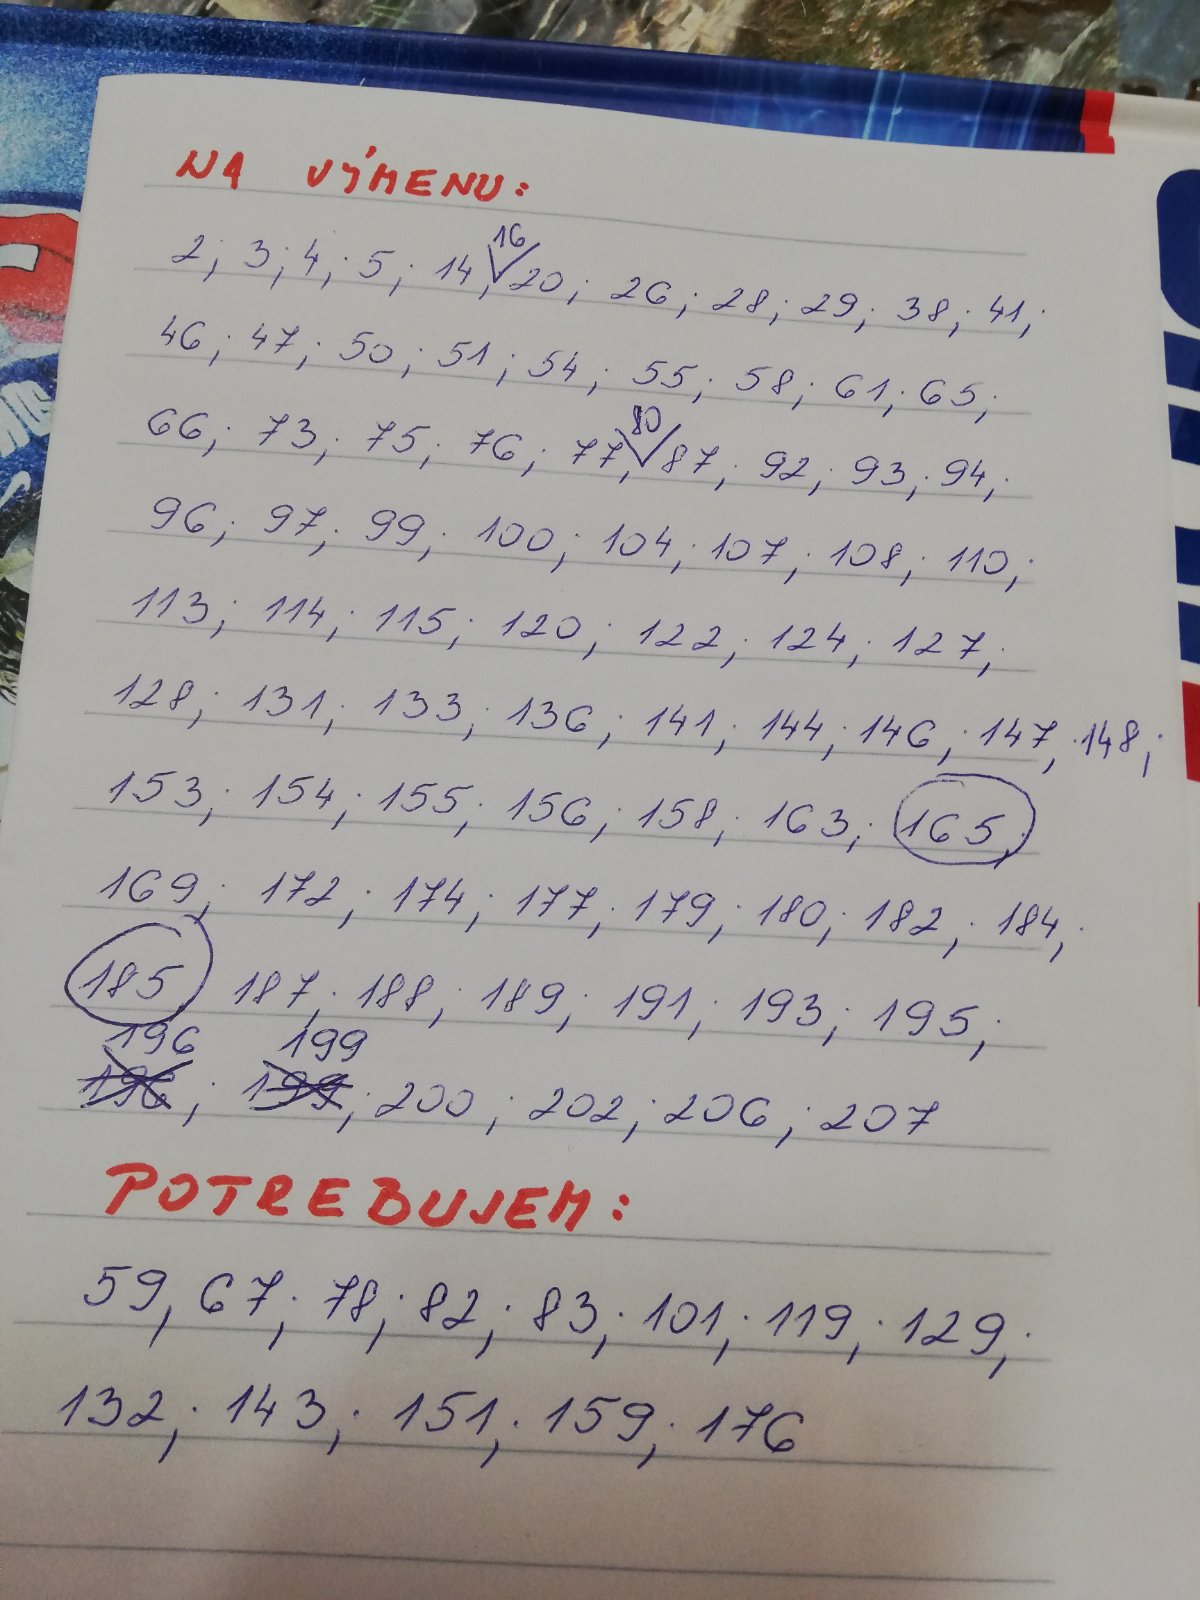 NA VÝMENU:
2; 3; 4; 5; 14; 16 20; 26; 28; 29; 38; 41;
46; 47; 50; 51; 54; 55; 58; 61; 65;
66; 73; 75; 76; 77; 80 87; 92; 93; 94;
96; 97; 99; 100; 104; 107; 108; 110;
113; 114; 115; 120; 122; 124; 127;
128; 131; 133; 136; 141; 144; 146; 147; 148;
153; 154; 155; 156; 158; 163; 165;
169; 172; 174; 177; 179; 180; 182; 184;
185; 187; 188; 189; 191; 193; 195;
196 199
196; 199; 200; 202; 206; 207
POTREBUJEM:
59; 67; 78; 82; 83; 101; 119; 129;
132; 143; 151; 159; 176